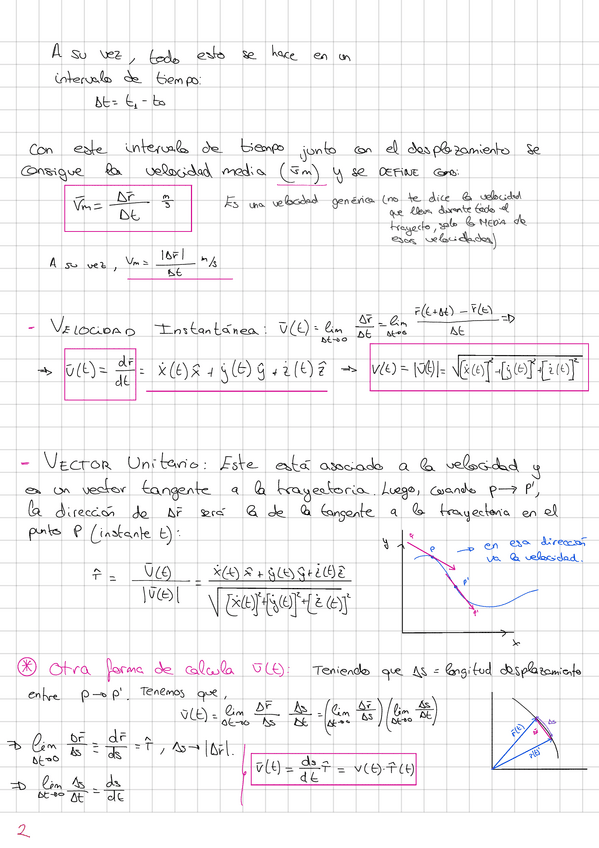 A su vez, todo esto se hace en un
intervalo de tiempo:
Δt = t₁ - t₀
Con este intervalo de tiempo junto con el desplazamiento se
consigue la velocidad media (v̄m) y se DEFINE como:
v̄m = Δr̄/Δt m/s
Es una velocidad genérica (no te dice la velocidad
que lleva durante todo el
trayecto, solo la MEDIA de
esas velocidades)
A su vez, Vm = |Δr̄|/Δt m/s
- VELOCIDAD Instantánea: v̄(t) = lim Δt→0 Δr̄/Δt = lim Δt→0 (r̄(t+Δt) - r̄(t))/Δt ⇒
→ v̄(t) = dr̄/dt = ẋ(t) x̂ + ẏ(t) ŷ + ż(t) ẑ → v(t) = |v̄(t)| = √([ẋ(t)]² + [ẏ(t)]² + [ż(t)]²)
- VECTOR Unitario: Este está asociado a la velocidad y
es un vector tangente a la trayectoria. Luego, cuando p → p',
la dirección de Δr̄ será la de la tangente a la trayectoria en el
punto P (instante t):
T̂ = v̄(t)/|v̄(t)| = (ẋ(t) x̂ + ẏ(t) ŷ + ż(t) ẑ)/√([ẋ(t)]² + [ẏ(t)]² + [ż(t)]²)
y
P
P'
x
→ en esa dirección
va la velocidad.
* Otra forma de calcula v̄(t): Teniendo que Δs = longitud desplazamiento
entre p → p'. Tenemos que,
v̄(t) = lim Δt→0 Δr̄/Δs Δs/Δt = (lim Δt→0 Δr̄/Δs) (lim Δt→0 Δs/Δt)
⇒ lim Δt→0 Δr̄/Δs = dr̄/ds = T̂, Δs → |Δr̄|.
⇒ lim Δt→0 Δs/Δt = ds/dt
v̄(t) = ds/dt T̂ = v(t) · T̂(t)
Δs
2